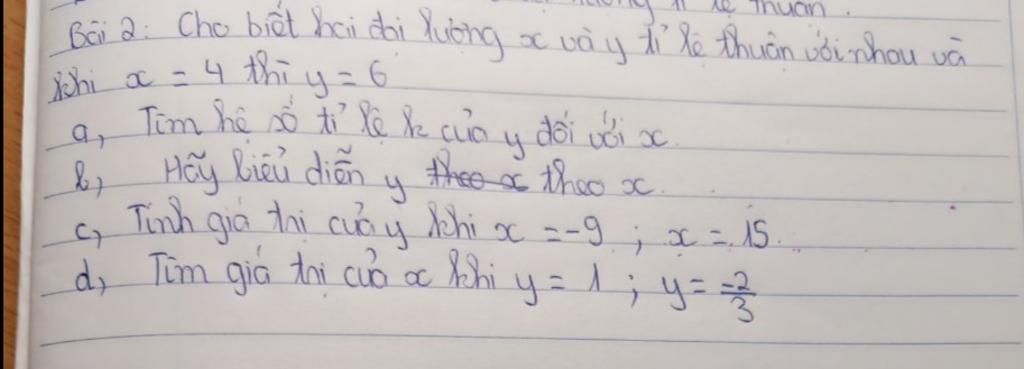 lệ thuận.
Bài 2: Cho biết hai đại lượng x và y tỉ lệ thuận với nhau và
khi x = 4 thì y = 6
a, Tìm hệ số tỉ lệ k của y đối với x.
b, Hãy biểu diễn y theo x theo x.
c, Tính giá trị của y khi x = -9 ; x = 15.
d, Tìm giá trị của x khi y = 1 ; y = -2/3